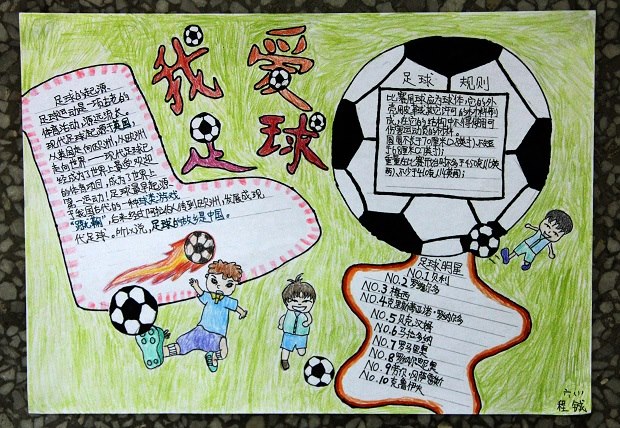 我爱足球
足球的起源
足球运动是一项古老的
体育活动，源远流长。
现代足球起源于英国，
从英国走向欧洲，从欧洲
走向世界——现代足球已
经成为了世界上最受欢迎
的体育项目，成为了世界上
第一运动！足球最早起源
于我国古代的一种球类游戏
“蹴鞠”，后来经过阿拉伯人传到欧洲，发展成现
代足球。所以说，足球的故乡是中国。
足球 规则
比赛用球应为球体，它的外
壳用皮革或其它许可的材料制
成，在它的结构中不得使用可
伤害运动员的材料。
圆周不长于70厘米(28英寸)，不短
于68厘米(27英寸)；
重量在比赛开始时不多于450克(16英
两)，不少于410克(14英两)；
足球明星
NO.1 贝利
NO.2 罗纳尔多
NO.3 梅西
NO.4 克里斯蒂亚诺·罗纳尔多
NO.5 贝克汉姆
NO.6 马拉多纳
NO.7 罗马里奥
NO.8 罗纳尔迪尼奥
NO.9 劳尔·冈萨雷斯
NO.10 克鲁伊夫
程